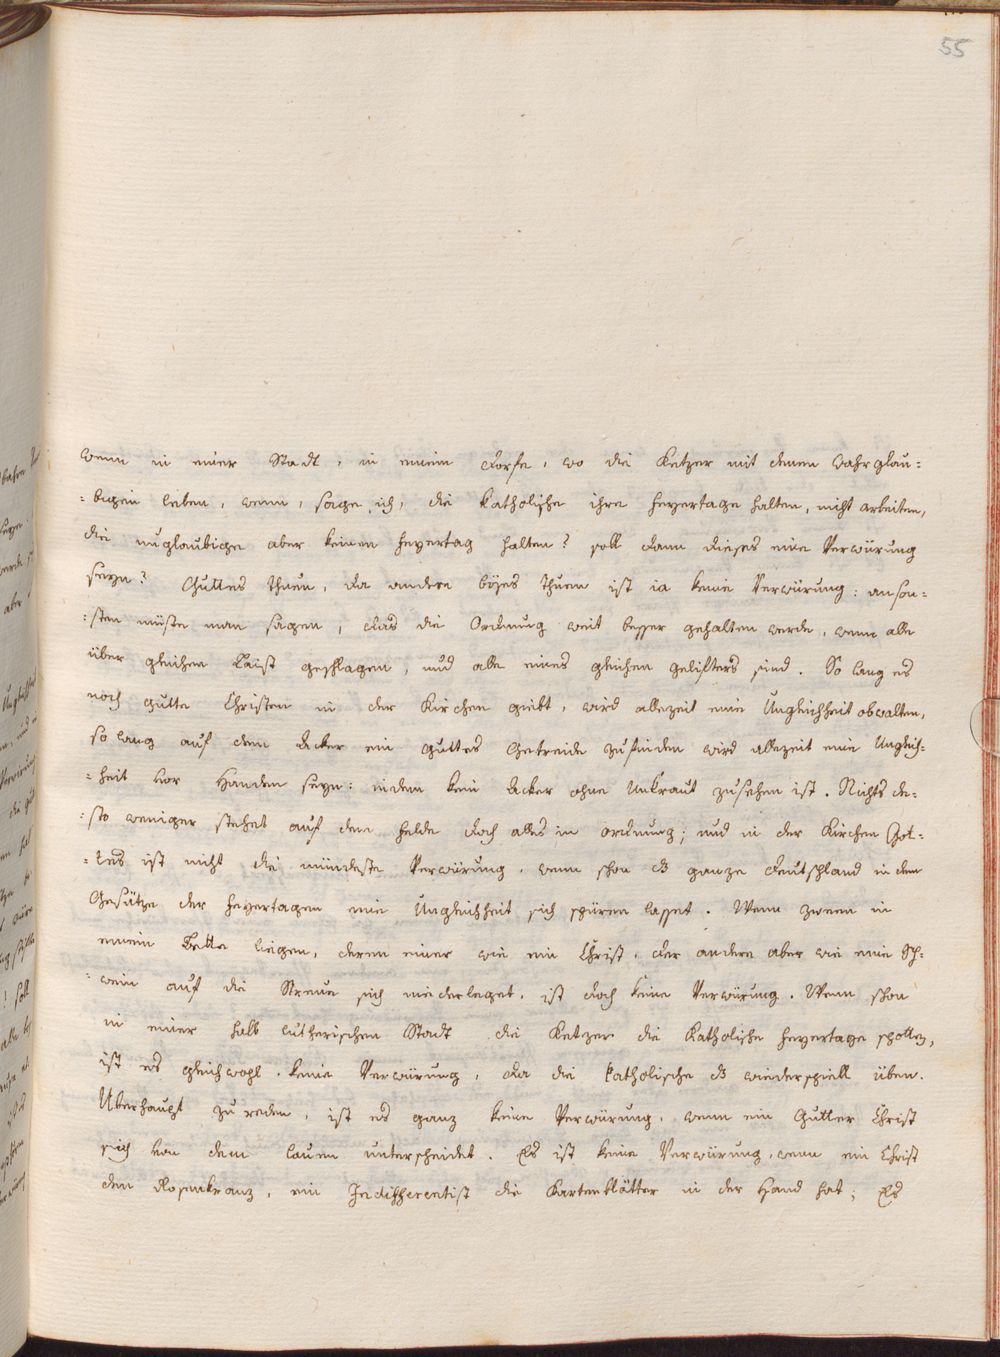 55
wenn in einer Stadt, in einem dorfe, wo die Ketzer mit denen wahrglau=
=bigen leben, wenn, sage ich, die katholische ihre feyertage halten, nicht arbeiten,
die unglaubige aber keinen feyertag halten? soll dann dieses eine Verwürung
seyn? Guttes thuen, da andere böses thuen ist ia keine Verwürung: anson=
=sten müste man sagen, das die Ordnung weit besser gehalten werde, wenn alle
über gleichen Laist geschlagen, und alle eines gleichen gelifters sind. So lang es
noch gutte Christen in der Kirchen giebt, wird allezeit eine Ungleichheit obwalten,
so lang auf dem Acker ein guttes Getreide zufinden wird allezeit eine Ungleich=
=heit vor Handen seyn: indem kein Acker ohne Unkraut zusehen ist. Nichts de=
=sto weniger stehet auf dem felde doch alles in ordnung; und in der Kirchen Got=
=tes ist nicht die mindeste Verwürung, wenn schon das ganze deutschland in dem
Gesätze der feyertagen eine Ungleichheit sich spüren lasset. Wenn zween in
einem Bette liegen, deren einer wie ein Christ, der andere aber wie eine Sch=
=wein auf die Streue sich niderleget, ist doch keine Verwürung. Wenn schon
in einer halb lutherischen Stadt die Ketzer die Katholische feyertage spotten,
ist es gleichwohl keine Verwürung, da die katholische das wiederspiell üben.
Überhaupt zu reden, ist es ganz keine Verwürung, wenn ein Gutter Christ
sich von dem lauen unterscheidet. Es ist keine Verwürung, wenn ein Christ
den Rosenkranz, ein Indifferentist die Kartenblätter in der Hand hat; Es